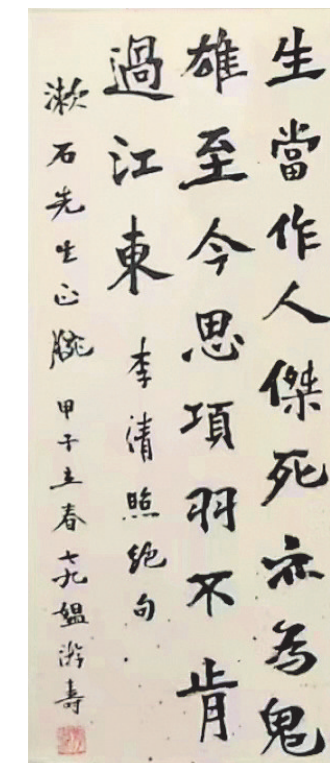 生當作人傑死亦為鬼
雄至今思項羽不肯
過江東 李清照絕句
漱石先生正腕 甲子立春 七九媼游壽